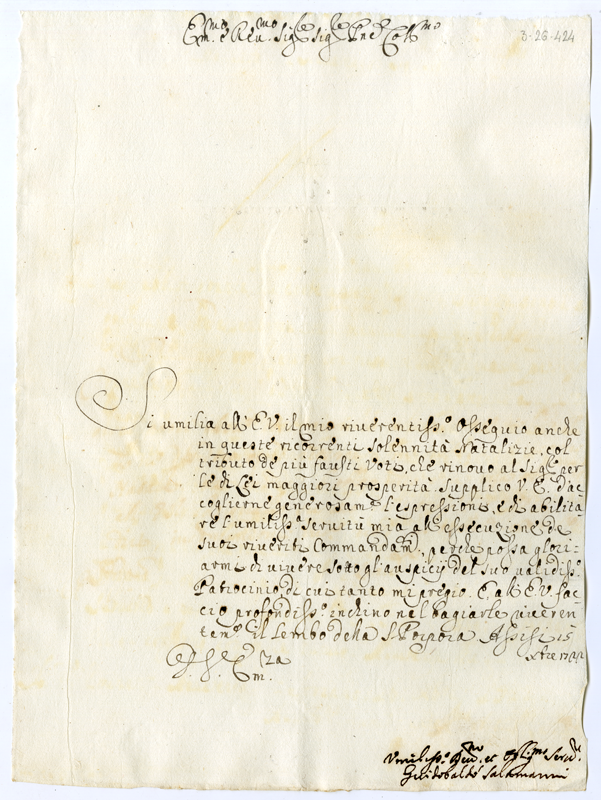 Em.mo e Reu.mo Sig.re Sig.re Pne Coll.mo
3-26-424
Si umilia all'E.V. il mio riverentiss.o Ossequio anche
in queste ricorrenti solennità Natalizie, col
tributo de più fausti Voti, che rinovo al Sig.re per
le di Lei maggiori prosperità. Supplico V.E. d'ac-
coglierne generosam.te l'espressioni, e di abilita-
re l'umiliss.a servitù mia all'essecuzione de
suoi riveriti Commandam.ti, perche possa glori-
armi di vivere sotto gl'auspicij del suo validiss.o
Patrocinio di cui tanto mi pregio. E all'E.V. fac-
cio profondiss.o inchino nel bagiarle riveren
tem.e il Lembo della S. Porpora. Assisi 15
Xbre
Em.za
Umiliss.o Deu.mo et Obl.mo Seru.re
Guidobaldo Salamanni